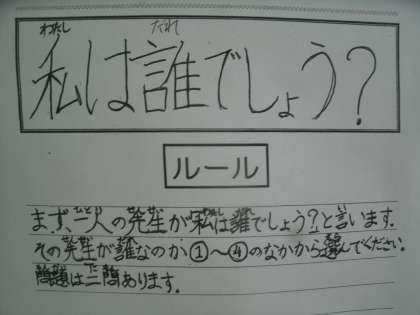 わたし だれ
私は誰でしょう?
ルール
まず、一人の先生が「私は誰でしょう?」と言います。
その先生が誰なのか①~④のなかから選んでください。
問題は二問あります。